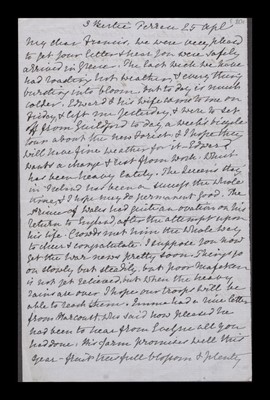 3 Leslie Terrace 25 Apl
My dear Francis, we were very pleased
to get your letter & hear you were safely
arrived in Greece. The last week we have
had roasting hot weather, & everything
bursting into bloom but to day is much
colder. Edward & his wife came to me on
Friday & left me yesterday, & were to set
off from Guildford to day a week's bicycle
tour about the New Forest. I hope they
will have fine weather for it. Edward
wants a change & rest from work. Which
has been heavy lately. The Queen's stay
in Ireland has been a success the whole
time, & I hope may do permanent good. The
Prince of Wales had quite an ovation on his
return to England after the attempt upon
his life. Crowds met him the whole way
to cheer & congratulate. I suppose you now
get the war news pretty soon. Things go
on slowly but steadily but poor Mafeking
is not yet relieved, but when the heavy
rains are over I hope our troops will be
able to reach them. had a nice letter
from Harcourt who said how pleased he
had been to hear from Evelyn all you
had done. His farm promises well this
year - fruit trees full blossom & plenty